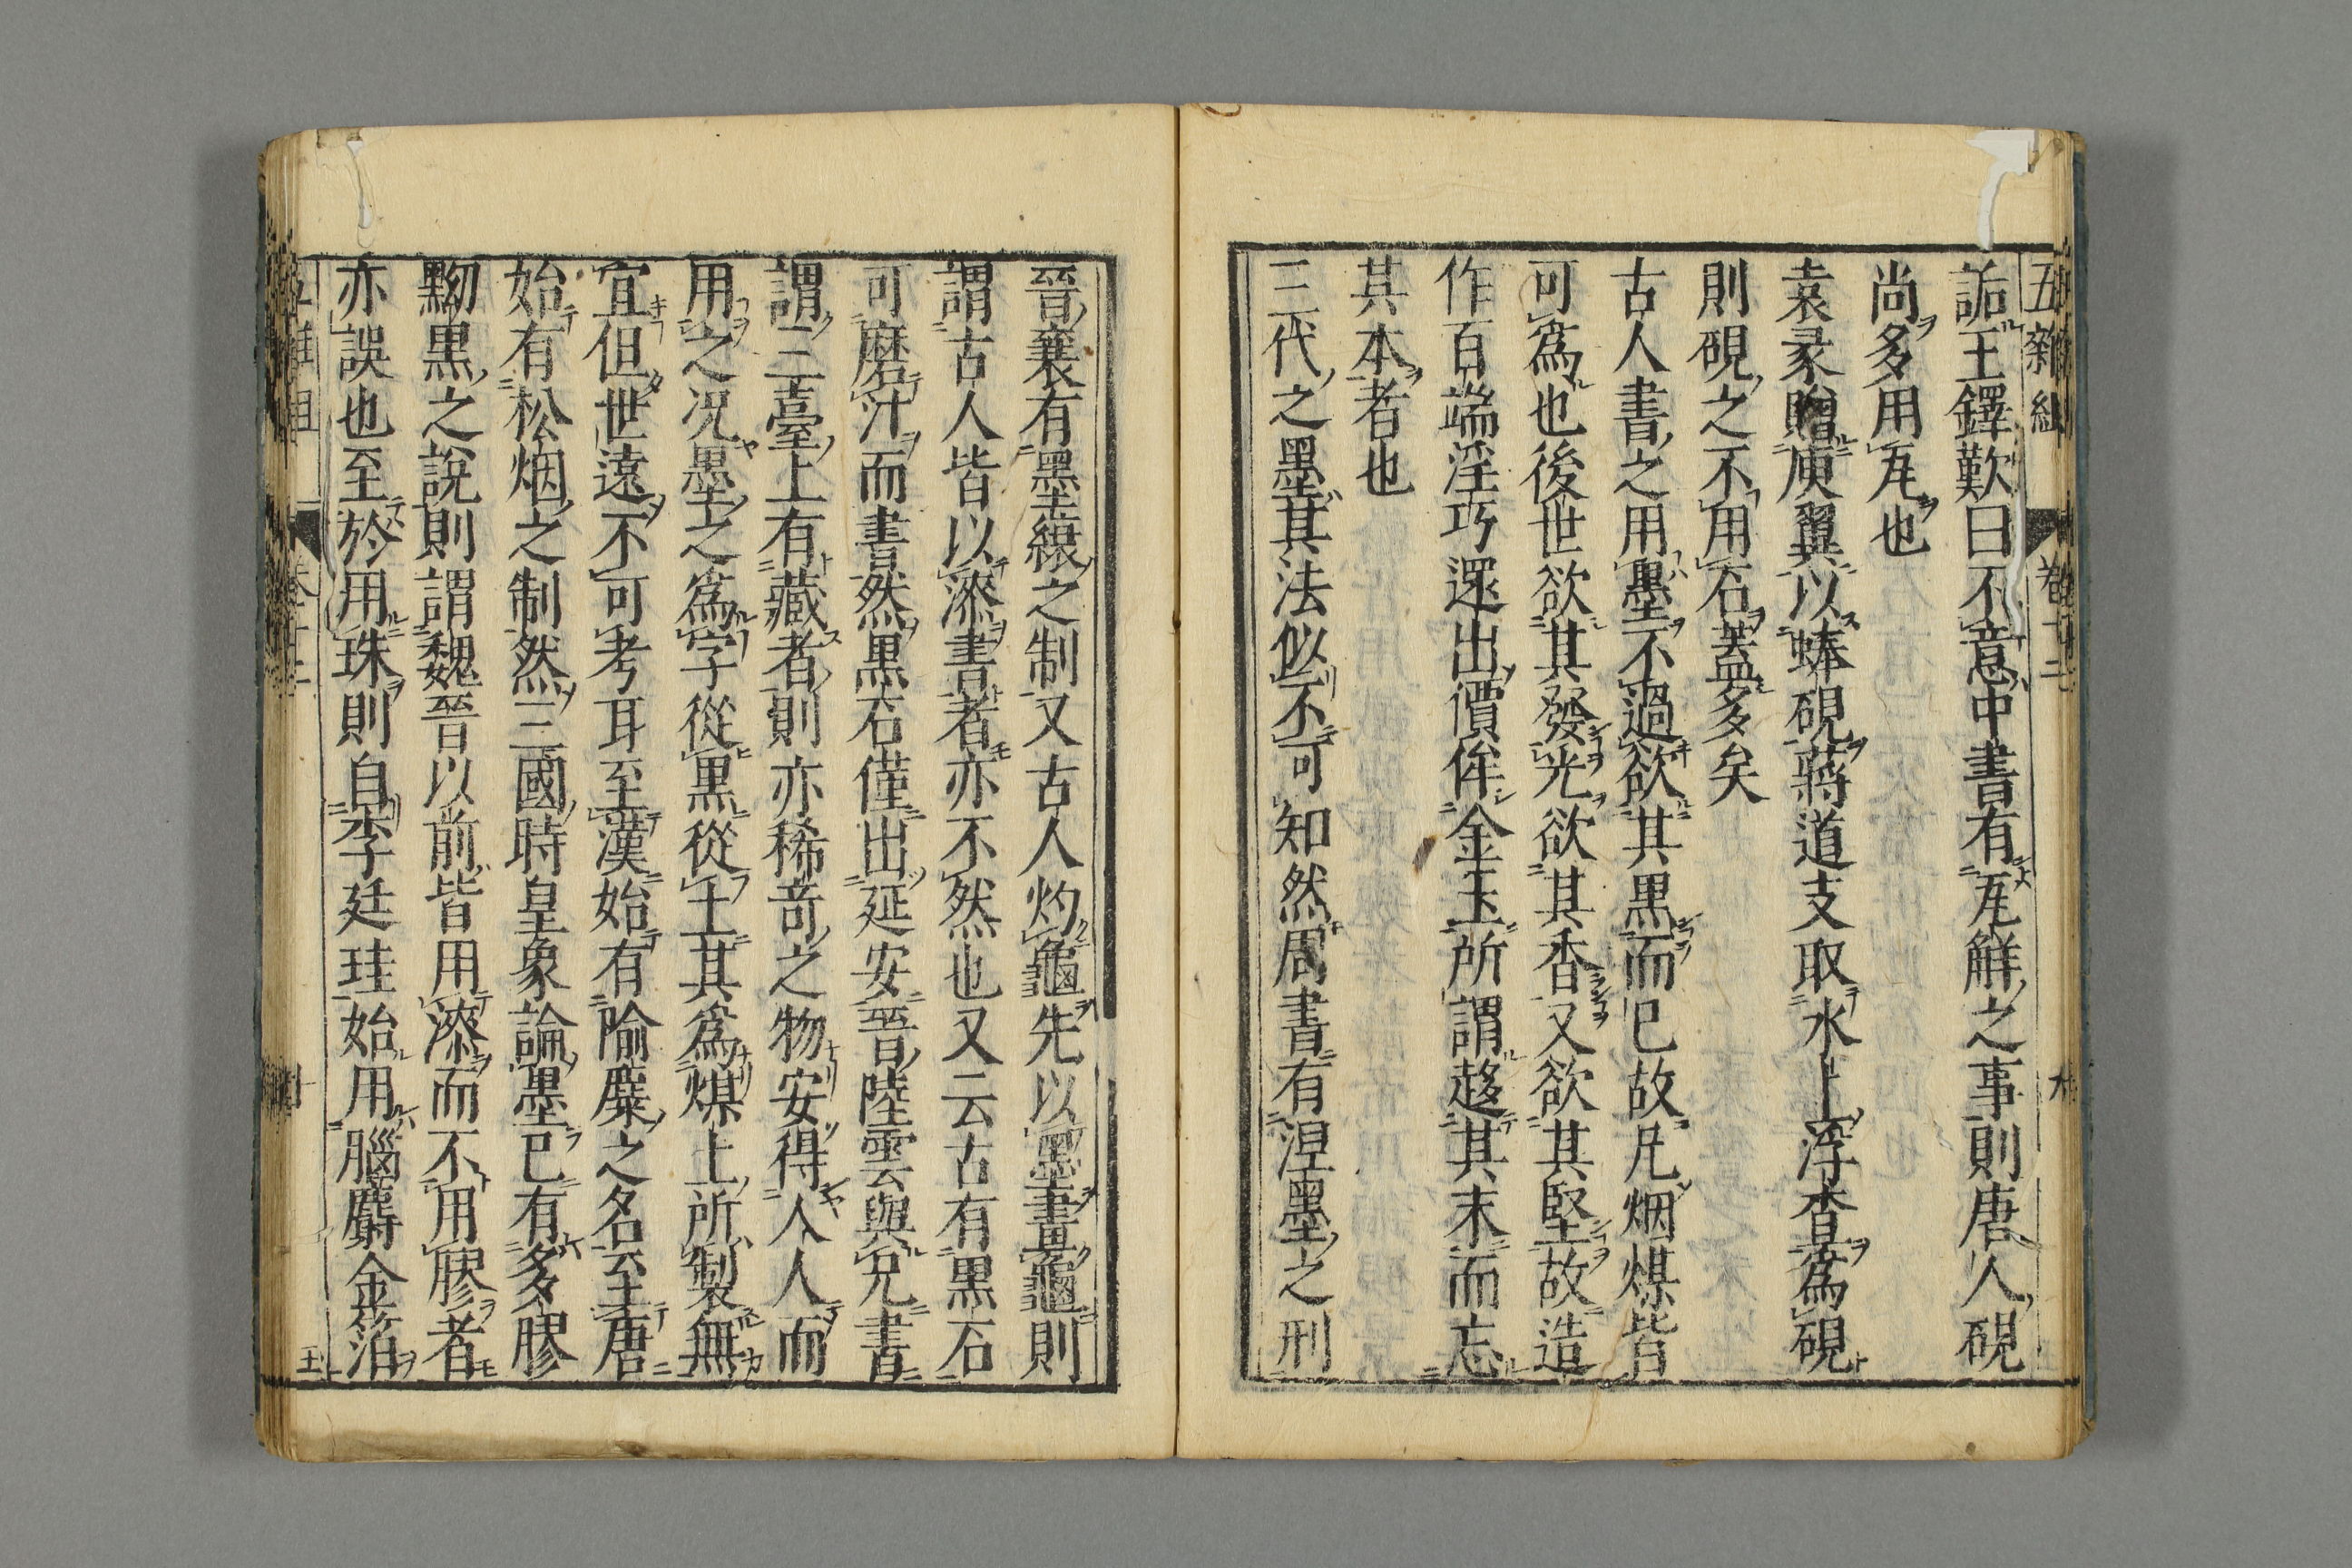 五雜組 卷十二
詬王鐸歎曰不意中書有瓦解之事則唐人硯
尚多用瓦也
袁彖贈庾翼以蜯硯蔣道支取水上浮查為硯
則硯之不用石蓋多矣
古人書之用墨不過欲其黑而已故凡烟煤皆
可為也後世欲其發光欲其香又欲其堅故造
作百端淫巧還出價侔金玉所謂趍其末而忘
其本者也
三代之墨其法似不可知然周書有涅墨之刑
晉襄有墨縗之制又古人灼龜先以墨畫龜則
謂古人皆以漆書者亦不然也又云古有黑石
可磨汁而書然黑石僅出延安晉陸雲與兄書
謂三臺上有藏者則亦稀奇之物安得人人而
用之况墨之為字從黑從土其為煤土所製無
宜但世遠不可考耳至漢始有隃麋之名至唐
始有松烟之制然三國時皇象論墨已有多膠
黝黑之說則謂魏晉以前皆用漆而不用膠者
亦誤也至於用珠則自李廷珪始用腦麝金箔